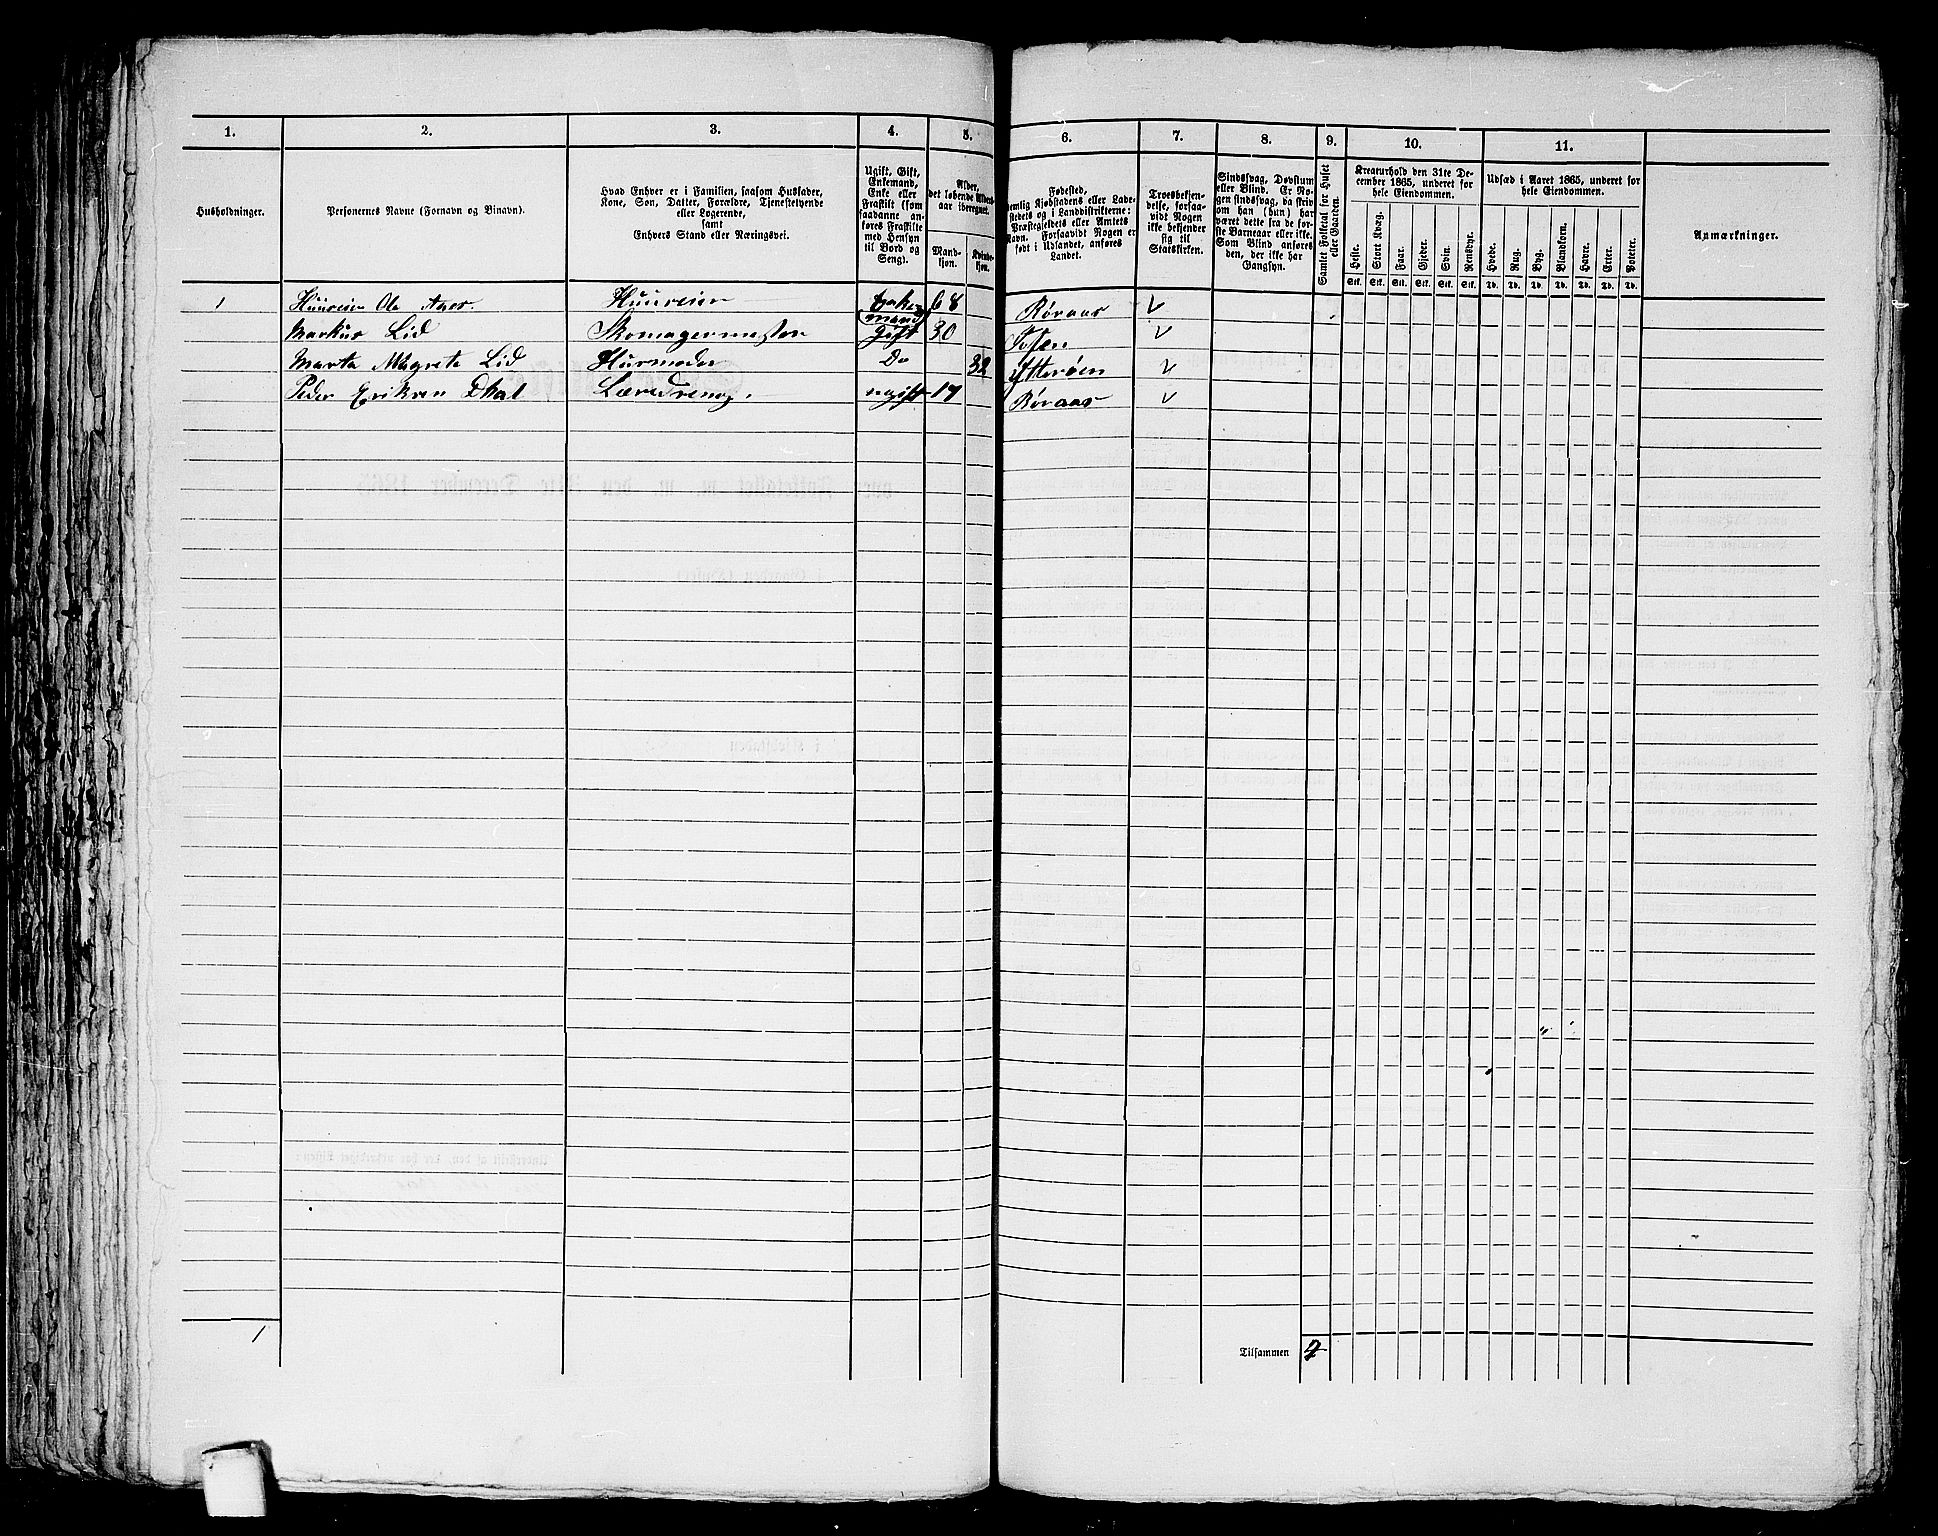 1. 2. 3. 4. 5. 6. 7. 8. 9. 10. 11.
Husholdninger.
Personernes Navne (Fornavn og Binavn).
Hvad Enhver er i Familien, saasom Husfader,
Kone, Søn, Datter, Forældre, Tjenestetyende
eller Logerende,
samt
Enhvers Stand eller Næringsvei.
Ugift, Gift,
Enkemand,
Enke eller
Fraskilt (som
saadanne an-
føres Fraskilte
med Hensyn
til Bord og
Seng).
Alder,
det løbende Alders-
aar iberegnet.
Mand-
kjøn.
Kvinde-
kjøn.
Fødested,
nemlig Kjøbstadens eller Lade-
stedets og i Landdistrikterne:
Præstegjeldets eller Amtets
Navn. Forsaavidt Nogen er
født i Udlandet, anføres
Landet.
Troesbekjen-
delse, forsaa-
vidt Nogen
ikke bekjender
sig til
Statskirken.
Sindssvag, Døvstum
eller Blind. Er No-
gen sindssvag, da skrives
om han (hun) har
været dette fra de før-
ste Barneaar eller ikke.
Som Blind anføres
den, der ikke har
Gangsyn.
Samlet Folketal for Huset
eller Gaarden.
Kreaturhold den 31te De-
cember 1865, underet for
hele Eiendommen.
Heste. Stort Kvæg. Faar. Gjeder. Svin. Rensdyr.
Stk. Stk. Stk. Stk. Stk. Stk.
Udsæd i Aaret 1865, underet for
hele Eiendommen.
Hvede. Rug. Byg. Blandkorn. Havre. Erter. Poteter.
Td. Td. Td. Td. Td. Td. Td.
Anmærkninger.
1 Huuseier Ole Huuseier Enkemand 68 Røraas
Markus Lid Skomagermester Gift 30
Marta Magrete Lid Husmoder Do 32 Ytterøen
Peder Eriksen Læredreng. ugift 17 Røraas
1
Tilsammen 4